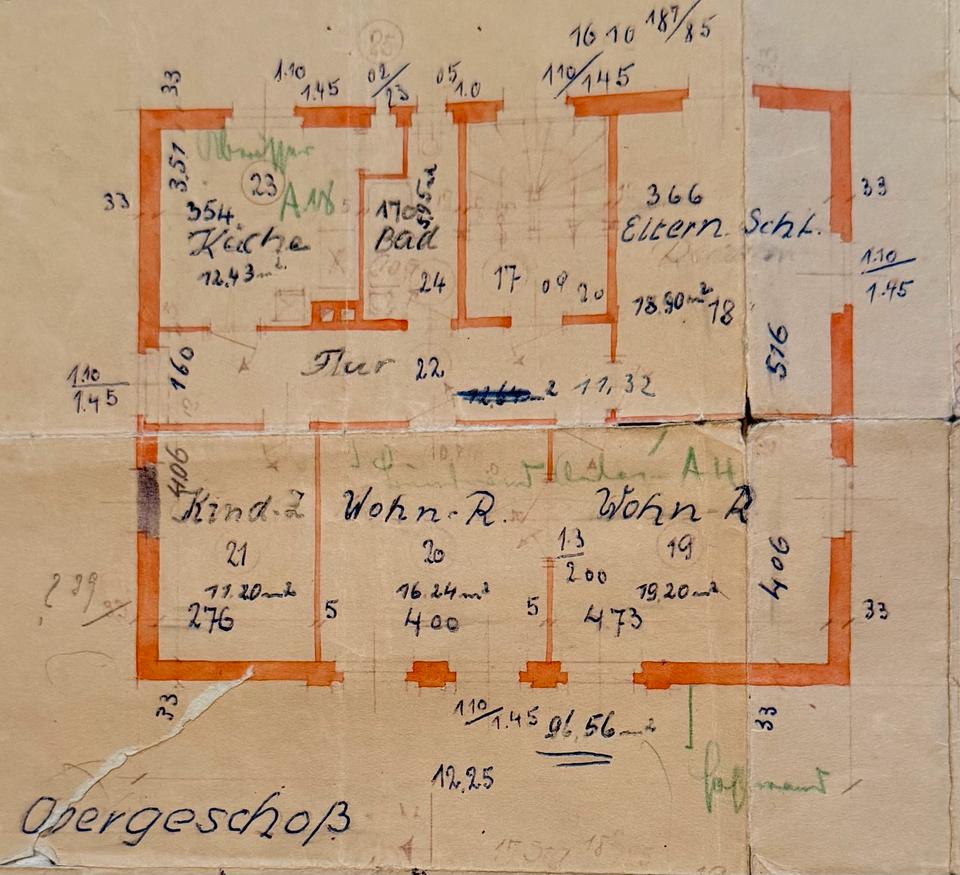 25
16 10 187/85
33
1.10
1.45
02/23
05
1.0
110/145
3.51
23
A18
354
Küche
12.43 m²
170
5.95 m²
Bad
24
17
09
20
366
Eltern. Schl.
18.90 m² 18
33
33
1.10
1.45
516
1.10
1.45
160
Flur 22
11,32
406
A 14
Kind-Z
Wohn-R.
Wohn-R
21
20
19
1.3
200
11.20 m²
16.24 m²
19.20 m²
276
5
400
5
473
406
33
33
110/1.45
96,56 m²
33
12,25
Obergeschoß